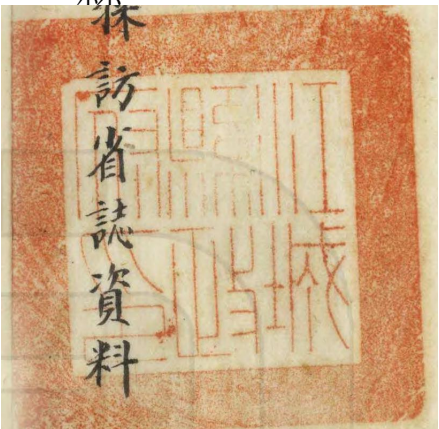 採訪省誌資料
江城
縣政
府印